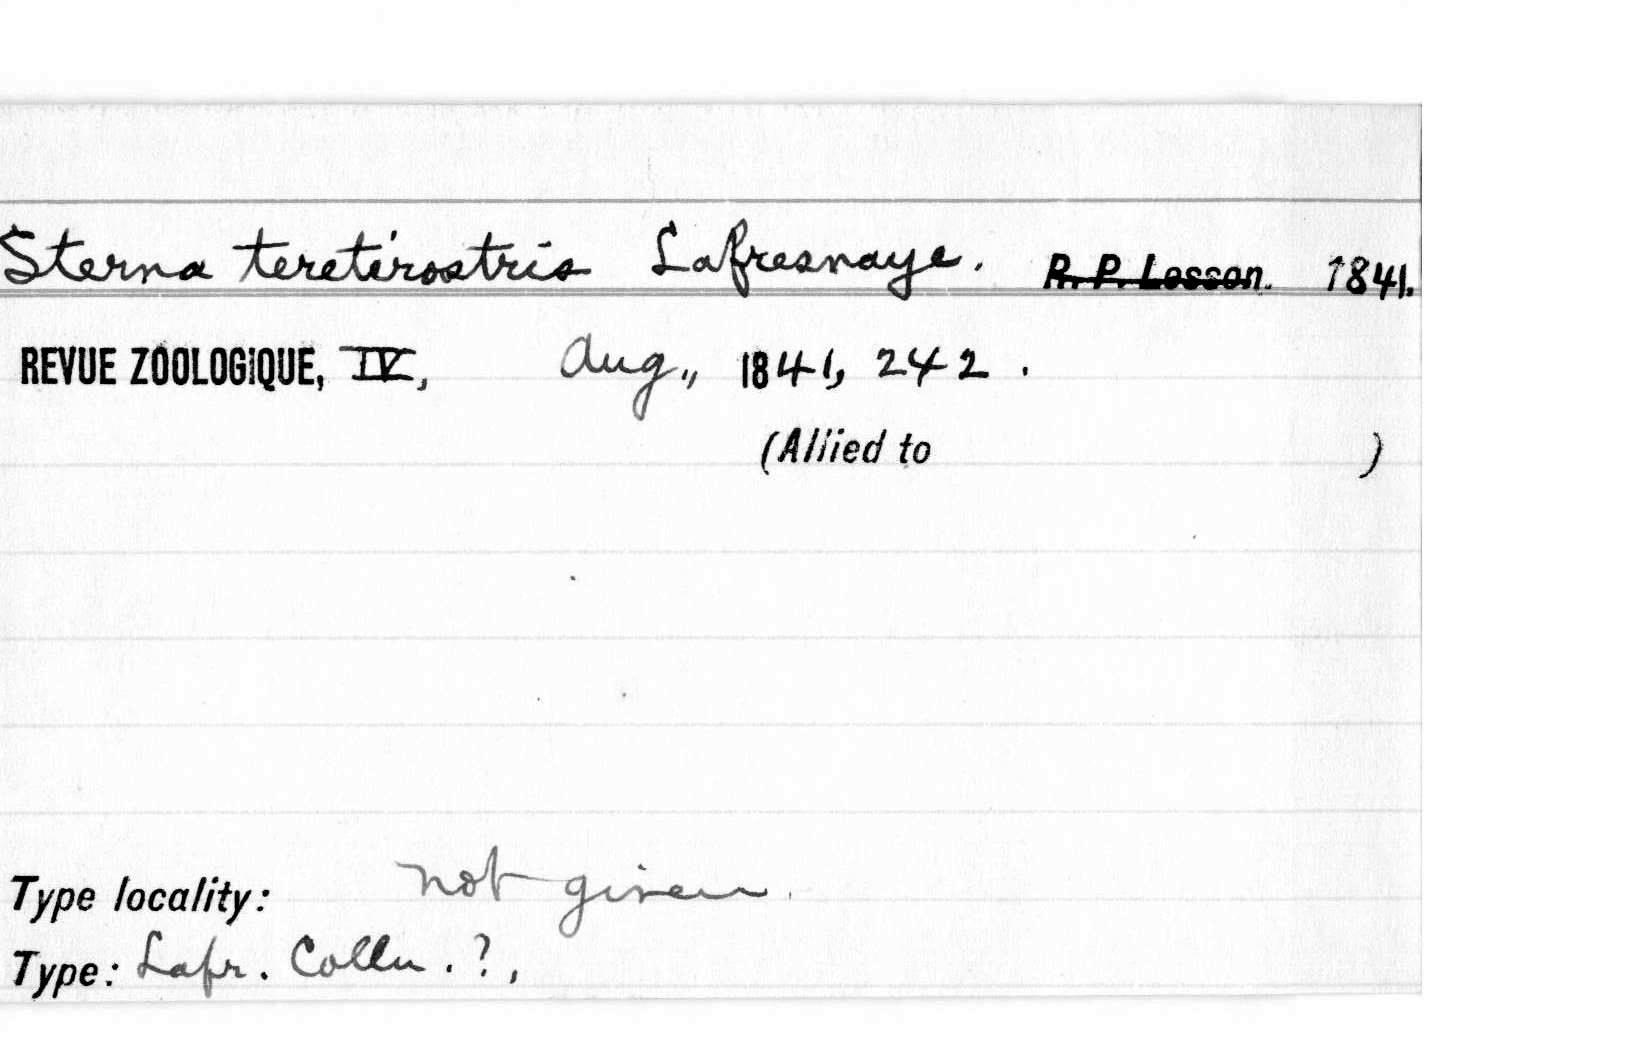 Sterna teretirostris Lafresnaye. R. P. Lesson. 1841.
REVUE ZOOLOGIQUE, IV, Aug., 1841, 242.
(Allied to )
Type locality: not given.
Type: Lafr. Colln. ?,